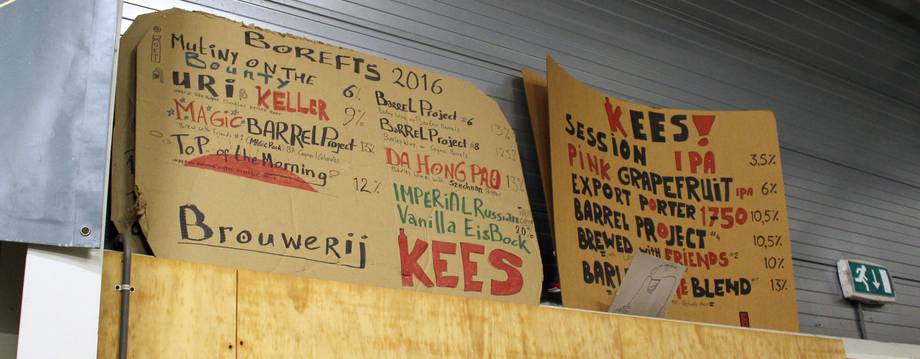 BOREFTS 2016
Mutiny ON THE
Bounty 6%
URi KELLER 9%
MAGIC BARREL Project 13%
TOP of the Morning 12%
Brouwerij
BARREL Project #6 13%
BARREL Project #8
DA HONG PAO 13%
Barley Wine with Szechuan
IMPERIAL Russian
Vanilla EisBock 20%
KEES
KEES!
SESSION IPA 3,5%
PINK GRAPEFRUIT IPA 6%
EXPORT PORTER 1750 10,5%
BARREL PROJECT #4 10,5%
BREWED with FRIENDS #2 10%
BLEND 13%